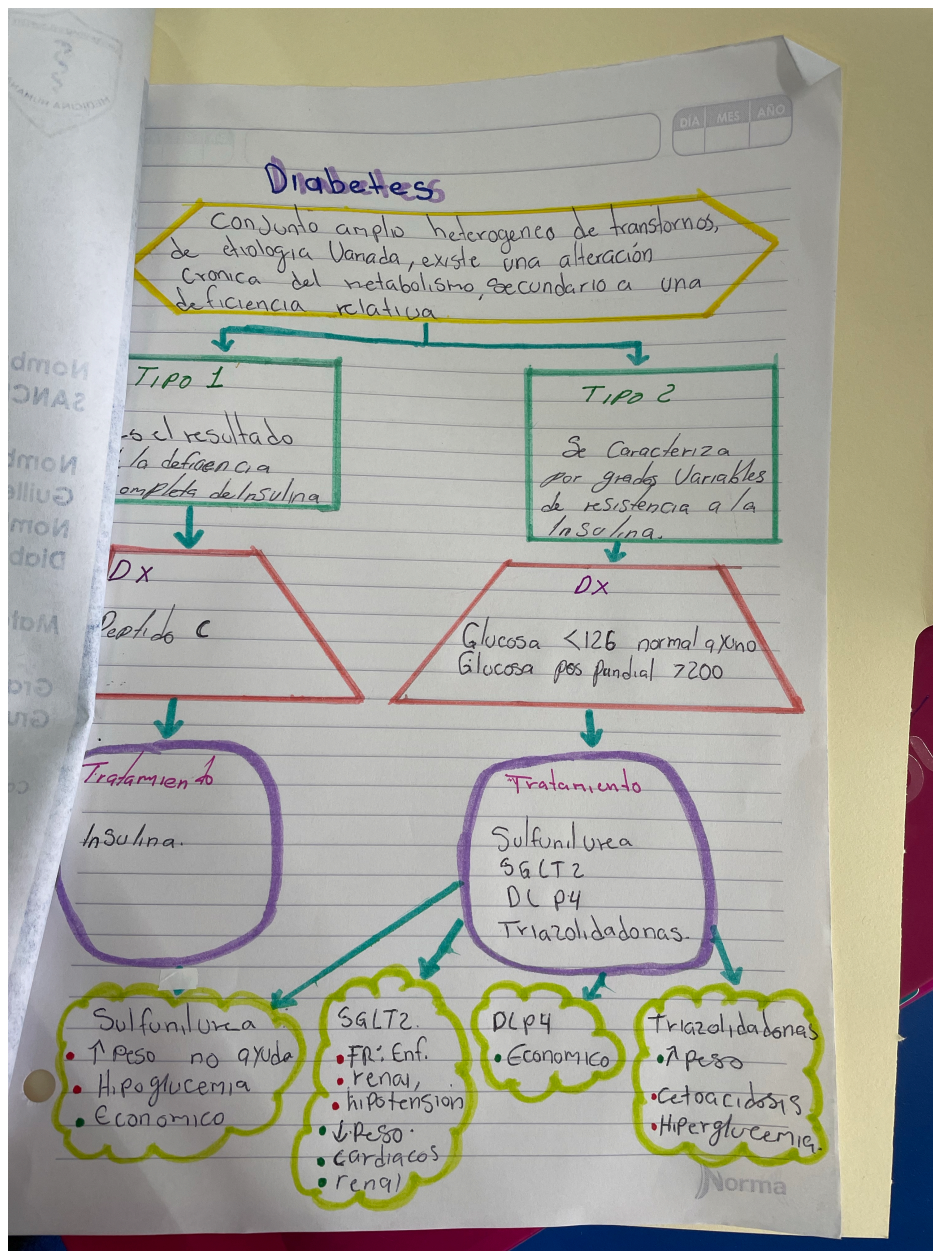 DÍA MES AÑO
Diabetes
Conjunto amplio heterogeneo de transtornos,
de etiologia Variada, existe una alteración
Cronica del metabolismo, secundario a una
deficiencia relativa
TIPO 1
es el resultado
la defiencia
ompleta de Insulina
TIPO 2
Se Caracteriza
por grados Variables
de resistencia a la
Insulina.
DX
Peptido C
DX
Glucosa <126 normal ayuno
Glucosa pos pandial >200
Tratamiento
Insulina.
Tratamiento
Sulfunilurea
SGLT2
DLP4
Triazolidadonas.
Sulfunilurea
• ↑ Peso no ayuda
• Hipoglucemia
• Economico
SGLT2.
• FR: Enf.
• renal,
• hipotension
• ↓ Peso.
• cardiacos
• renal
DLP4
• Economico
Triazolidadonas
• ↑ Peso
• Cetoacidosis
• Hiperglucemia.
Norma